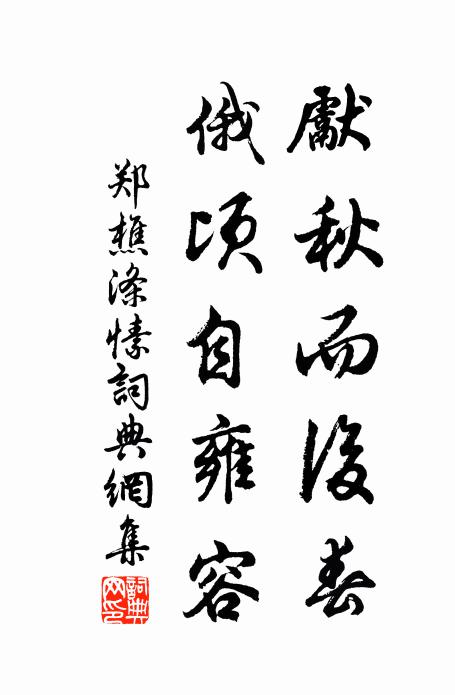 獻秋而後春
俄顷自雍容
郑樵涤愫詞典網集
詞典网印